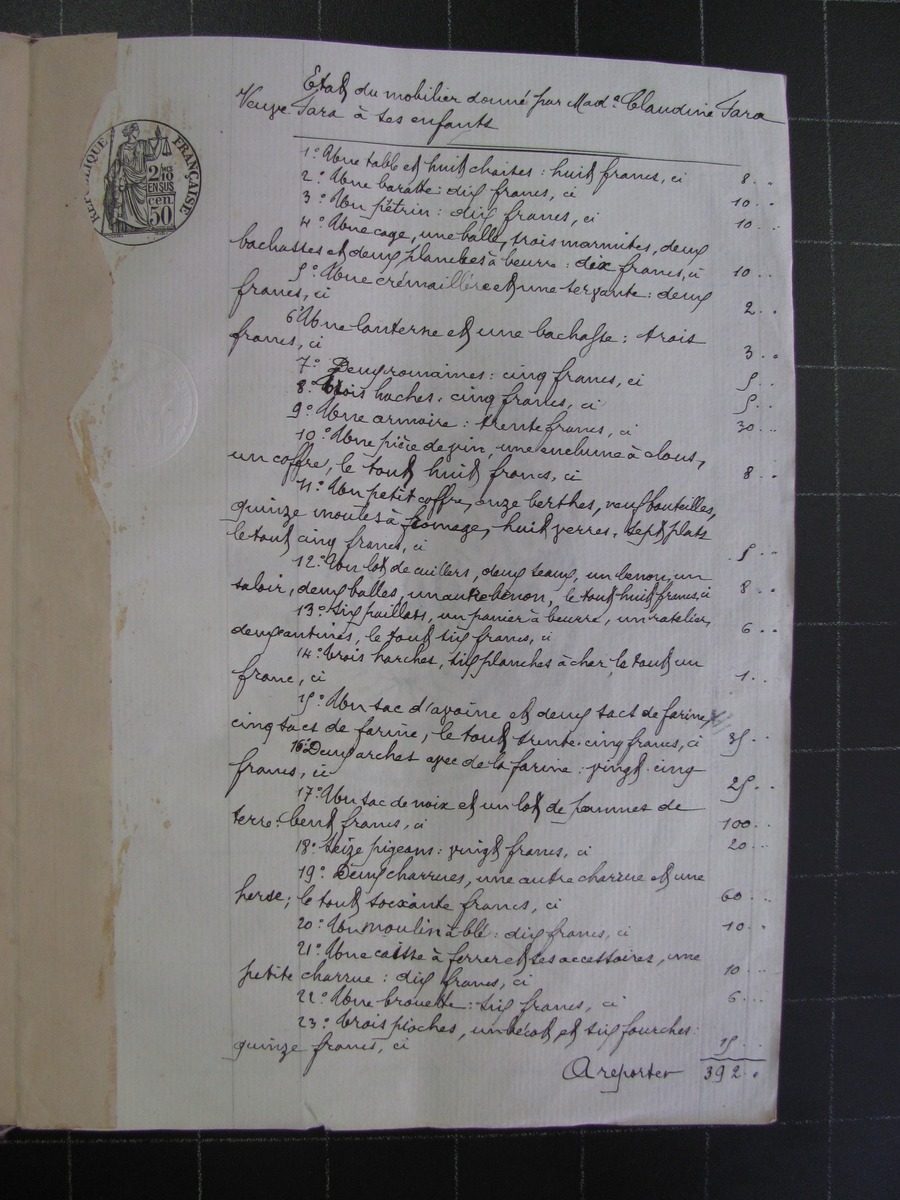 RÉPUBLIQUE FRANÇAISE
2/10 EN SUS
cen. 50
Etat du mobilier donné par Mad.e Claudine Fara
Veuve Fara à ses enfants
1° Une table et huit chaises : huit francs, ci 8 . .
2° Une baratte : dix francs, ci 10 . .
3° Un pétrin : dix francs, ci 10 . .
4° Une cage, une balle, trois marmites, deux
bachasses et deux planches à beurre : dix francs, ci 10 . .
5° Une crémaillère et une servante : deux
francs, ci 2 . .
6° Une lanterne et une bachasse : trois
francs, ci 3 . .
7° Deux romaines : cinq francs, ci 5 . .
8° trois haches : cinq francs, ci 5 . .
9° Une armoire : trente francs, ci 30 . .
10° Une pièce de vin, une enclume à clous,
un coffre, le tout huit francs, ci 8 . .
11° Un petit coffre, onze berthes, neuf bouteilles,
quinze moules à fromage, huit verres, sept plats
le tout cinq francs, ci 5 . .
12° Un lot de cuillers, deux seaux, un benon, un
saloir, deux balles, un autre benon, le tout huit francs, ci 8 . .
13° Six paillats, un panier à beurre, un ratelier,
deux cantines, le tout six francs, ci 6 . .
14° trois harches, six planches à char, le tout un
franc, ci 1 . .
15° Un sac d'avoine et deux sacs de farine,
cinq sacs de farine, le tout trente-cinq francs, ci 35 . .
16° Deux arches avec de la farine : vingt-cinq
francs, ci 25 . .
17° Un sac de noix et un lot de pommes de
terre : cent francs, ci 100 . .
18° Seize pigeons : vingt francs, ci 20 . .
19° Deux charrues, une autre charrue et une
herse ; le tout soixante francs, ci 60 . .
20° Un moulin à blé : dix francs, ci 10 . .
21° Une caisse à ferrer et ses accessoires, une
petite charrue : dix francs, ci 10 . .
22° Une brouette : six francs, ci 6 . .
23° trois pioches, un bécot, et six fourches :
quinze francs, ci 15 . .
A reporter 392 . .